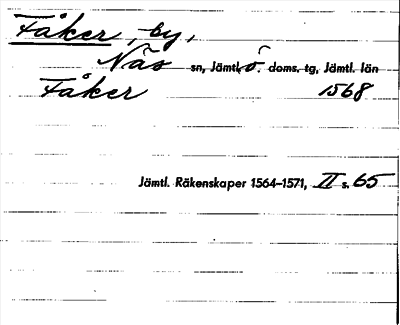 Fåker, by,
Näs sn, Jämtl. ö. doms. tg, Jämtl. län
Fåker 1568
Jämtl. Räkenskaper 1564–1571, II s. 65